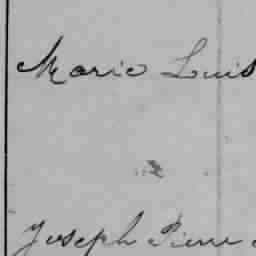 Marie Luis
Joseph Pierre